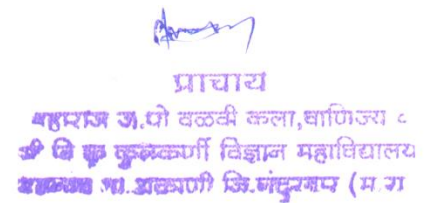 प्राचाय
महाराज ज.पो वळवी कला,वाणिज्य
श्री वि कुलकर्णी विज्ञान महाविद्यालय
अक्राणी जि.नंदुरबार (म.रा